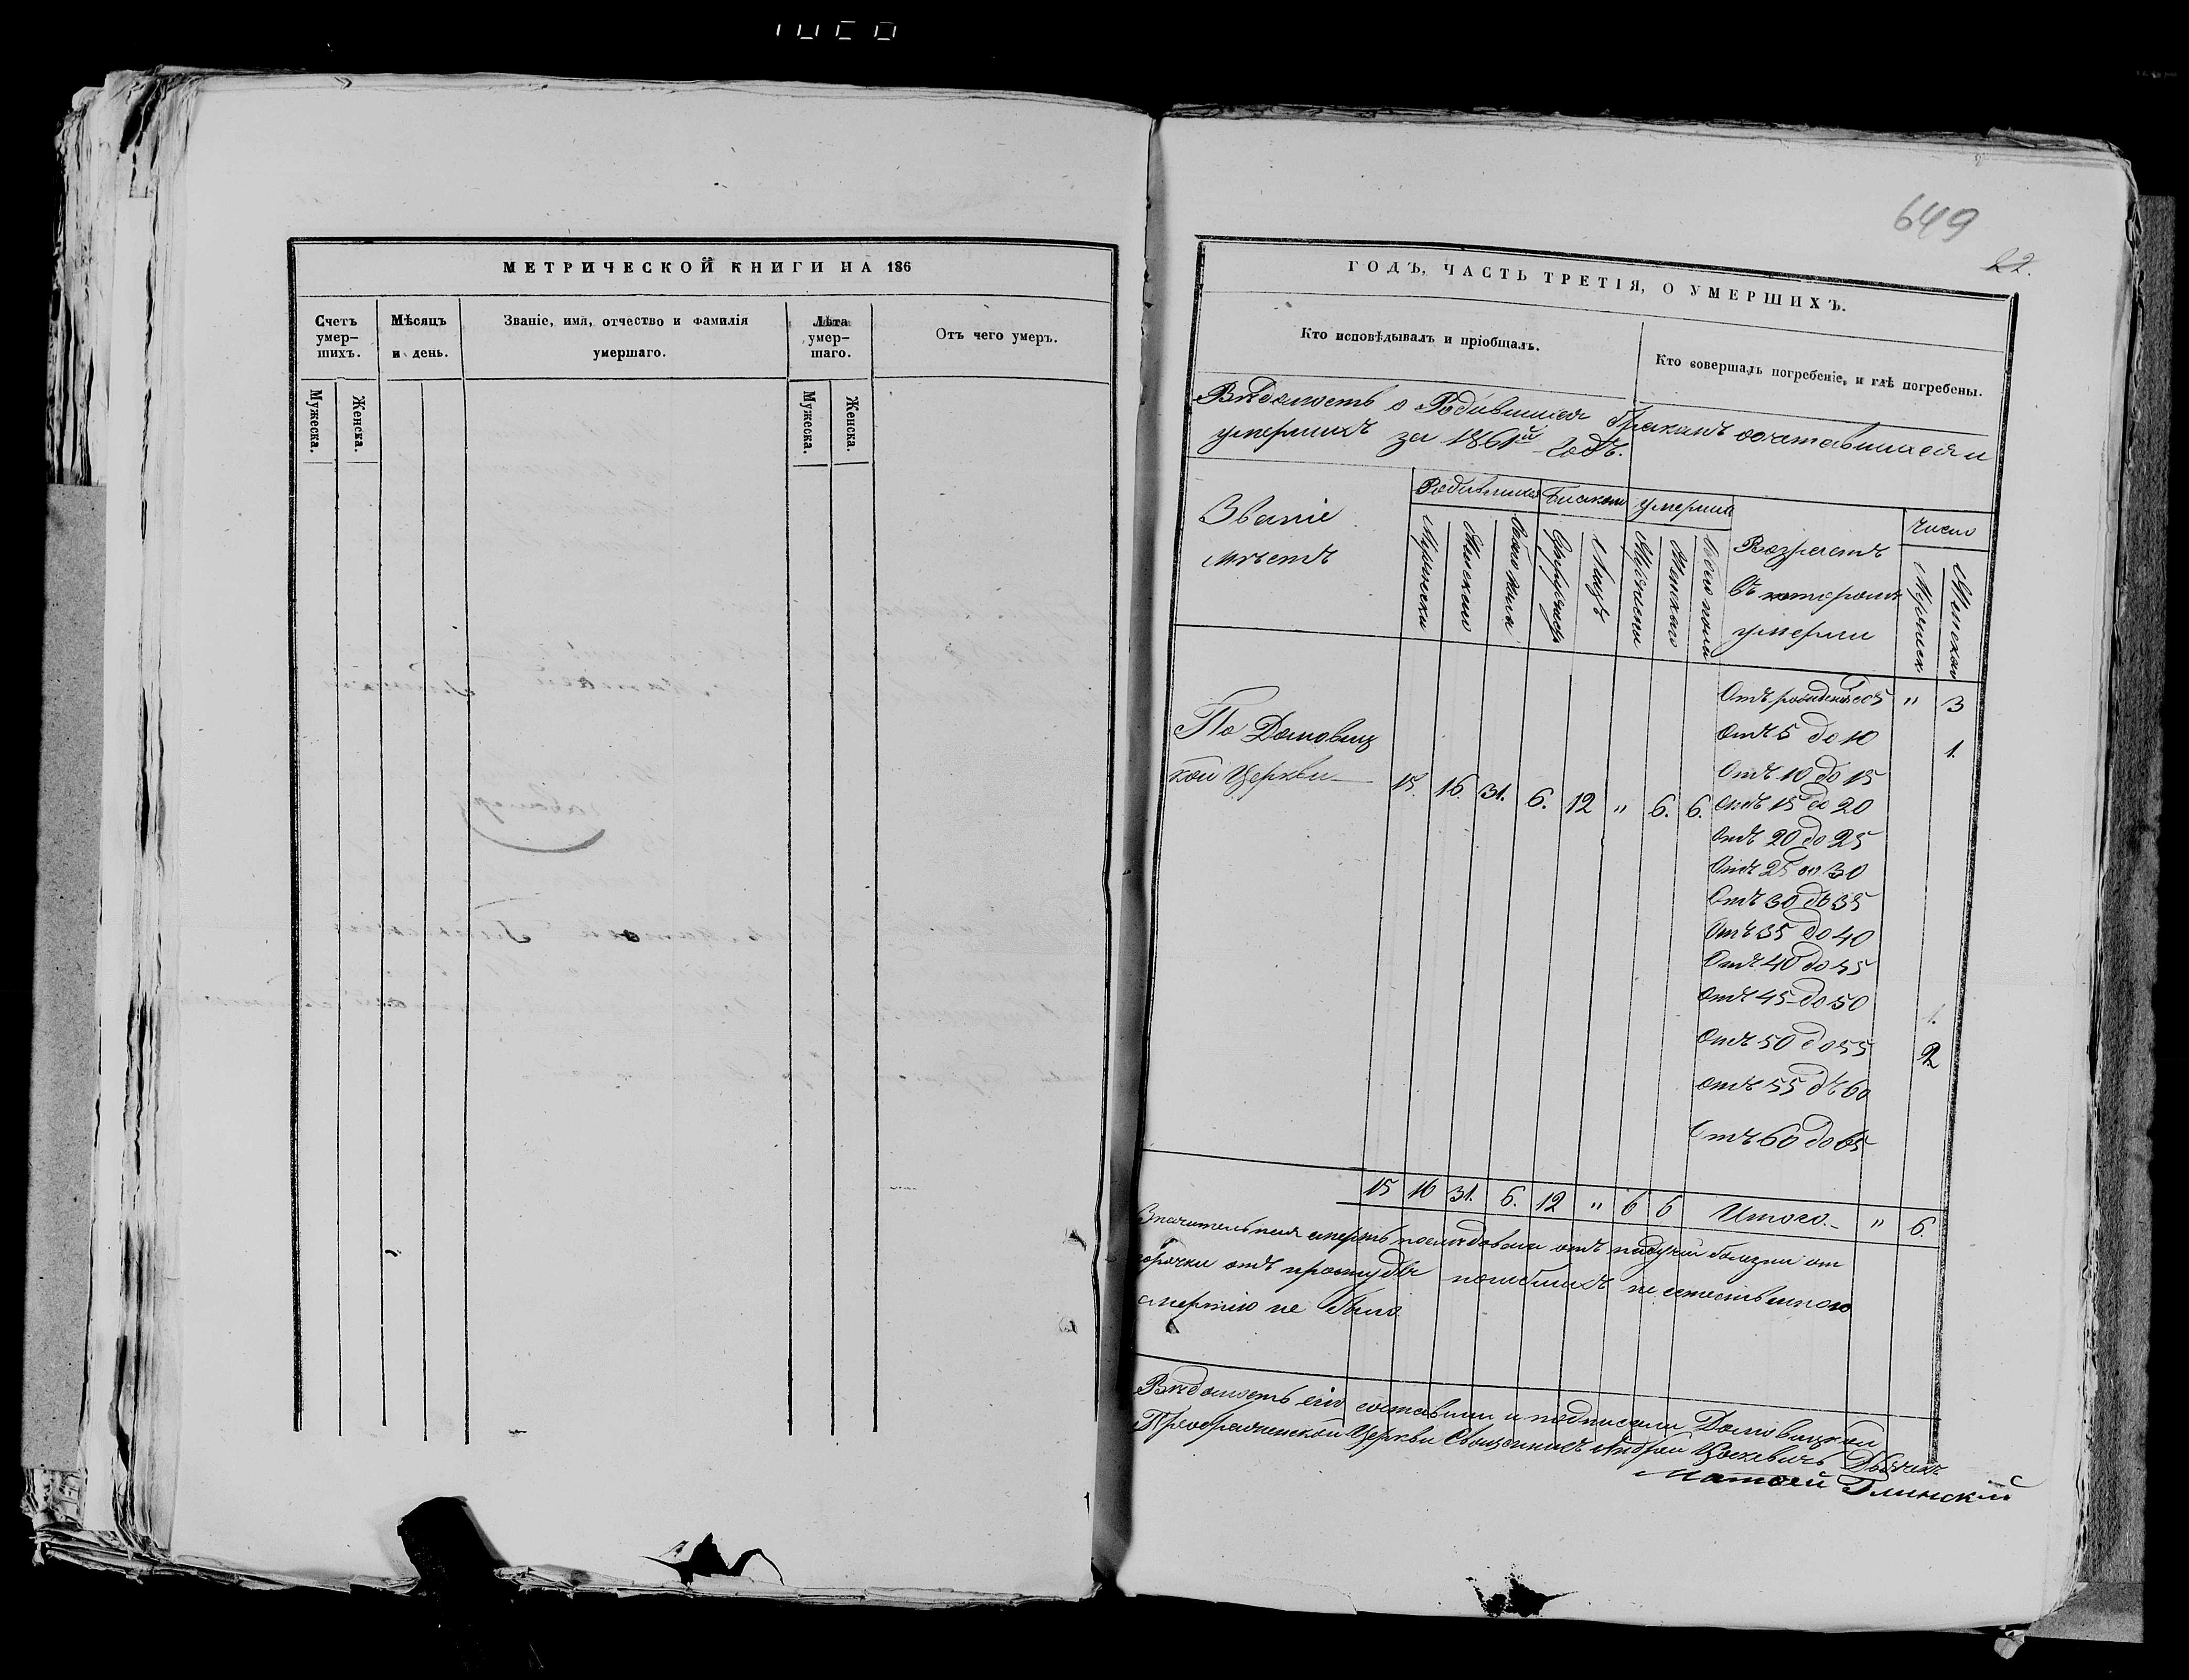 МЕТРИЧЕСКОЙ КНИГИ НА 186
Счетъ умер-шихъ.
Мѣсяцъ и день.
Званіе, имя, отчество и фамилія умершаго.
Лѣта умер-шаго.
Отъ чего умеръ.
Мужеска.
Женска.
Мужеска.
Женска.
649
22.
ГОДЪ, ЧАСТЬ ТРЕТІЯ, О УМЕРШИХЪ.
Кто исповѣдывалъ и пріобщалъ.
Кто совершалъ погребеніе, и гдѣ погребены.
Вѣдомость о Родившихся бракамъ сочетавшихся и
умершихъ за 1861й Годъ.
Званіе
мѣстъ
Возрастъ
въ которомъ
умерли
число
По Домовиц
кой Церкви
15. 16. 31. 6. 12 " 6. 6.
Отъ рожденія до 5 " 3
Отъ 5 до 10 1.
Отъ 10 до 15
Отъ 15 до 20
Отъ 20 до 25
Отъ 25 до 30
Отъ 30 до 35
Отъ 35 до 40
Отъ 40 до 45
Отъ 45 до 50
1.
Отъ 50 до 55 2
Отъ 55 до 60
Отъ 60 до 65
15 16 31. 6. 12 " 6 6 Итого. " 6.
смерть последовали отъ падучей болезни от
горячки отъ простуды погибшихъ не естественною
смертію не было
Вѣдомость сію составили и подписали Домовицкой
Преображенской Церкви Священникъ Андрей Дьячекъ
Матѳей Глинскій